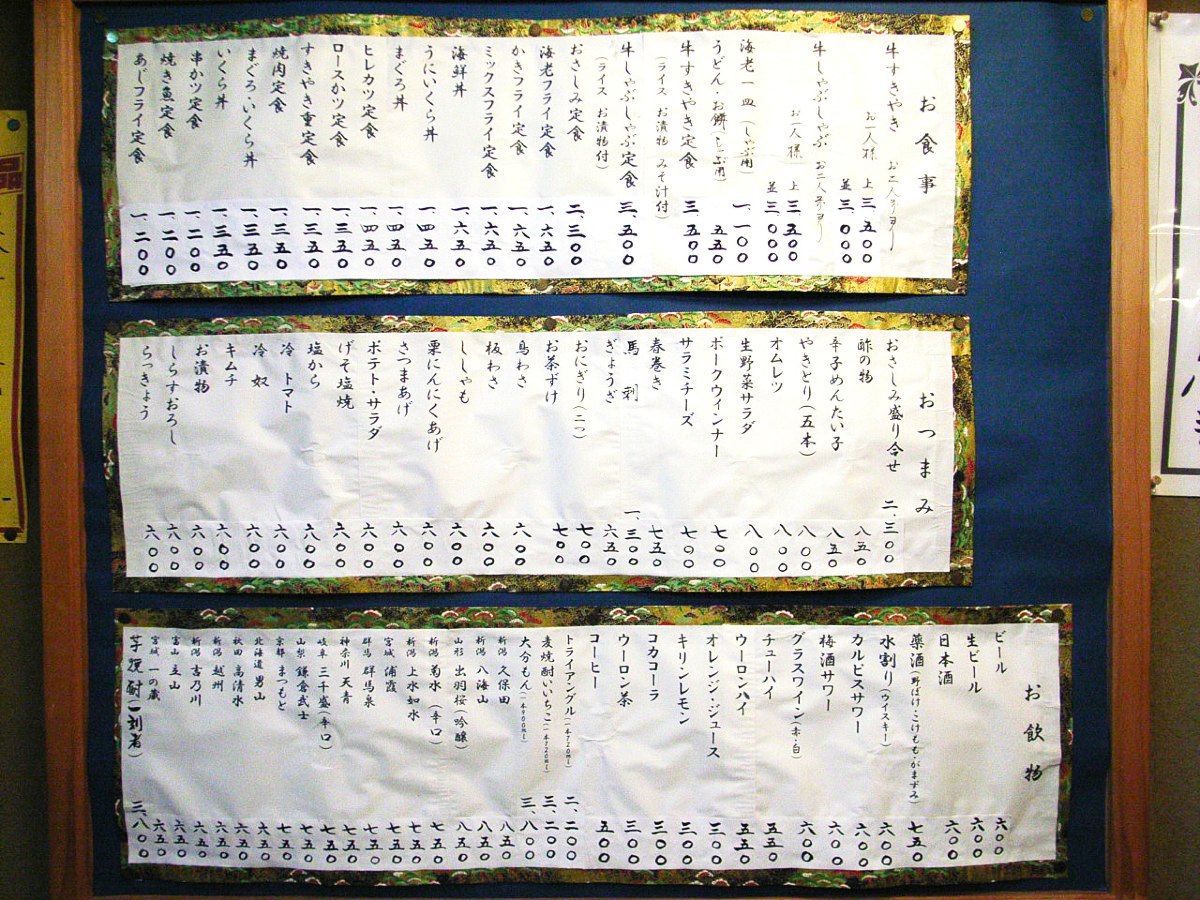 お食事
牛すきやき お二人分より
お一人様 上 三、五〇〇
並 三、〇〇〇
牛しゃぶしゃぶ お二人分より
お一人様 上 三、五〇〇
並 三、〇〇〇
海老一皿(しゃぶ用) 一、一〇〇
うどん・お餅(しゃぶ用) 五五〇
牛すきやき定食 三、五〇〇
(ライス お漬物 みそ汁付)
牛しゃぶしゃぶ定食 三、五〇〇
(ライス お漬物付)
おさしみ定食 二、三〇〇
海老フライ定食 一、六五〇
かきフライ定食 一、六五〇
ミックスフライ定食 一、六五〇
海鮮丼 一、六五〇
うにいくら丼 一、四五〇
まぐろ丼 一、四五〇
ヒレカツ定食 一、四五〇
ロースカツ定食 一、三五〇
すきやき重定食 一、三五〇
焼肉定食 一、三五〇
まぐろ・いくら丼 一、三五〇
いくら丼 一、三五〇
串かツ定食 一、二〇〇
焼き魚定食 一、二〇〇
あじフライ定食 一、二〇〇
おつまみ
おさしみ盛り合せ 二、三〇〇
酢の物 八五〇
辛子めんたい子 八五〇
やきとり(五本) 八〇〇
オムレツ 八〇〇
生野菜サラダ 八〇〇
ポークウィンナー 七〇〇
サラミチーズ 七〇〇
春巻き 七五〇
馬刺 一、三〇〇
ぎょうざ 六五〇
おにぎり(二つ) 七〇〇
お茶ずけ 七〇〇
鳥わさ 六〇〇
板わさ 六〇〇
ししゃも 六〇〇
栗にんにくあげ 六〇〇
さつまあげ 六〇〇
ポテトサラダ 六〇〇
げそ塩焼 六〇〇
塩から 六〇〇
冷トマト 六〇〇
冷奴 六〇〇
キムチ 六〇〇
お漬物 六〇〇
しらすおろし 六〇〇
らっきょう 六〇〇
お飲物
ビール 六〇〇
生ビール 六〇〇
日本酒 六〇〇
薬酒(野ばけ・こけもも・がまずみ) 七五〇
水割り(ウイスキー) 六〇〇
カルピスサワー 六〇〇
梅酒サワー 六〇〇
グラスワイン(赤・白) 六〇〇
チューハイ 五五〇
ウーロンハイ 五五〇
オレンジ・ジュース 三〇〇
キリンレモン 三〇〇
コカコーラ 三〇〇
ウーロン茶 三〇〇
コーヒー 五〇〇
トライアングル(一本720ml) 二、二〇〇
麦焼酎いいちこ(一本720ml) 三、二〇〇
大分もん(一本900ml) 三、八〇〇
新潟 久保田 八五〇
新潟 八海山 八五〇
山形 出羽桜(吟醸) 八五〇
新潟 菊水(辛口) 七五〇
新潟 上水如水 七五〇
宮城 浦霞 七五〇
群馬 群馬泉 七五〇
神奈川 天青 七五〇
岐阜 三千盛(辛口) 七五〇
山梨 鎌倉武士 七五〇
京都 まつもと 七五〇
北海道 男山 六五〇
秋田 高清水 六五〇
新潟 越州 六五〇
新潟 吉乃川 六五〇
富山 立山 六五〇
宮城 一の蔵 六五〇
芋焼酎(一刻者) 三、八〇〇
品